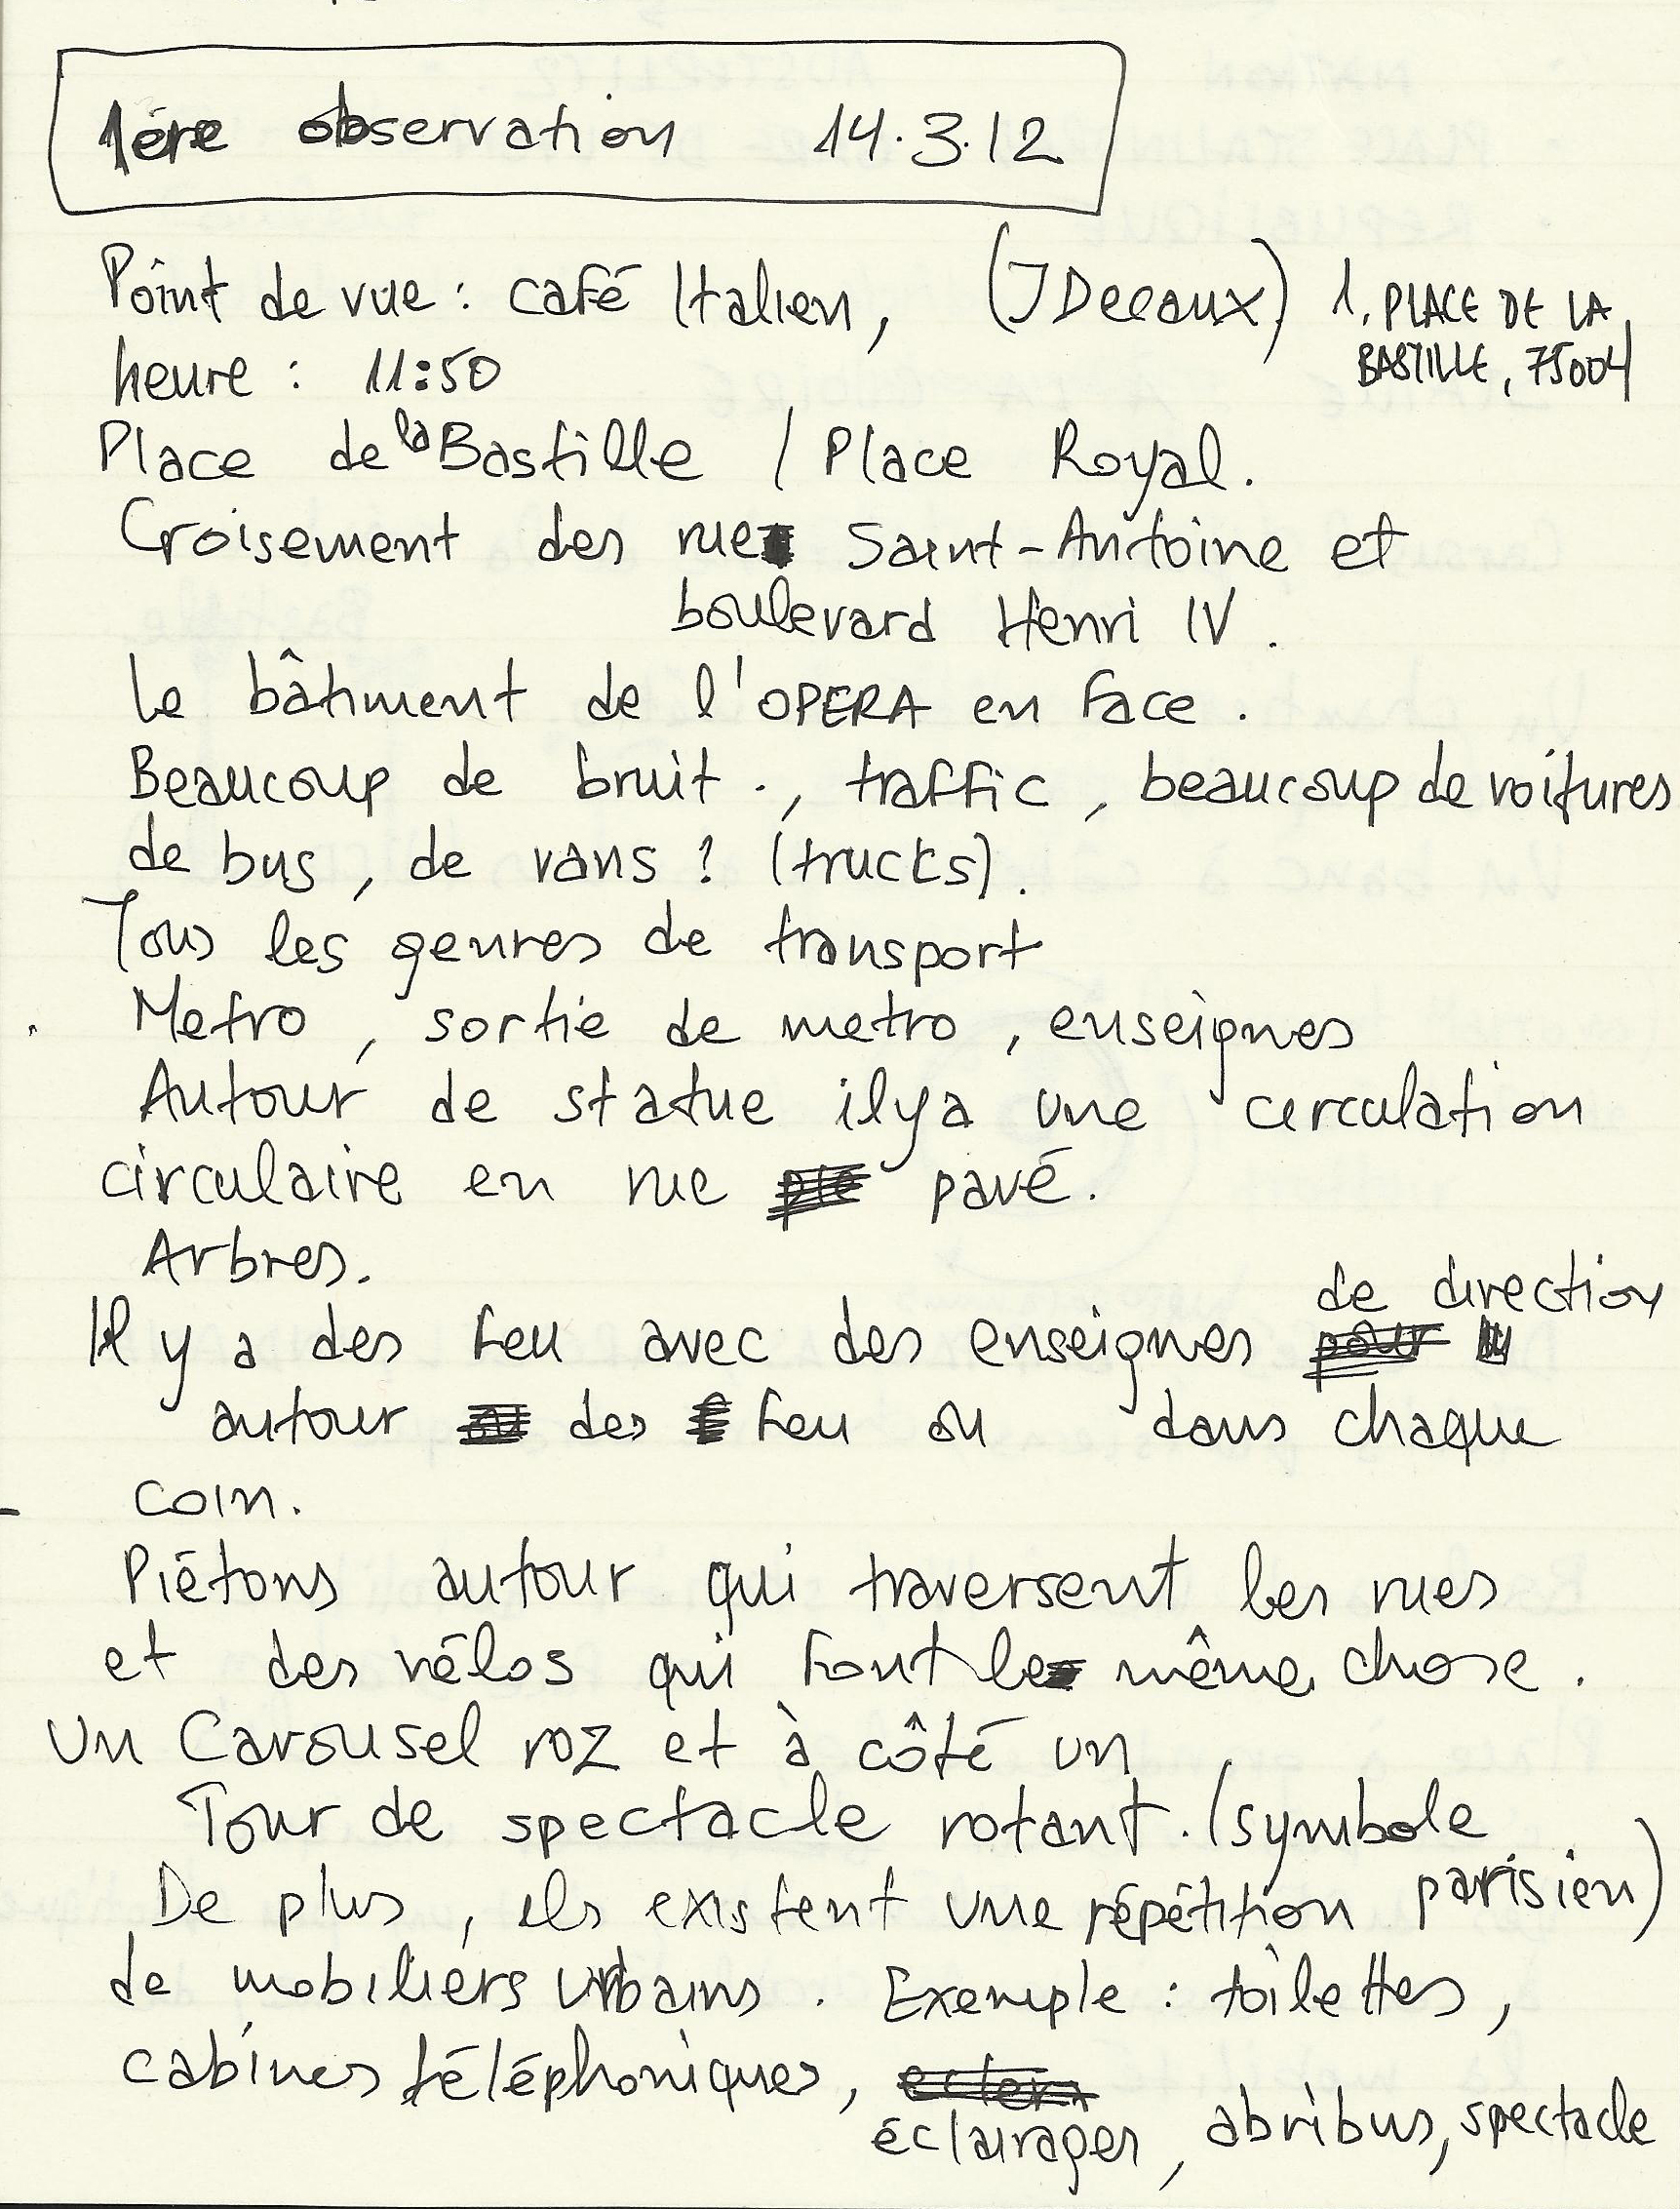 1ére observation 14.3.12
Point de vue : café Italien, (JDecaux) 1, PLACE DE LA
BASTILLE, 75004
heure : 11:50
Place de la Bastille / Place Royal.
Croisement des rue Saint-Antoine et
boulevard Henri IV.
Le bâtiment de l'OPERA en face.
Beaucoup de bruit ., traffic, beaucoup de voitures
de bus, de vans? (trucks).
Tous les genres de transport
Metro, sortie de metro, enseignes
Autour de statue il y a une cerculation
circulaire en rue pavé.
Arbres.
Il y a des feu avec des enseignes de direction
autour des feu ou dans chaque
coin.
Piétons autour qui traversent les rues
et des vélos qui font le même chose.
Un Carousel roz et à côté un
Tour de spectacle rotant. (symbole
parisien)
De plus, ils existent une répétition
de mobiliers urbains. Exemple : toilettes,
cabines téléphoniques,
éclairages, abribus, spectacle